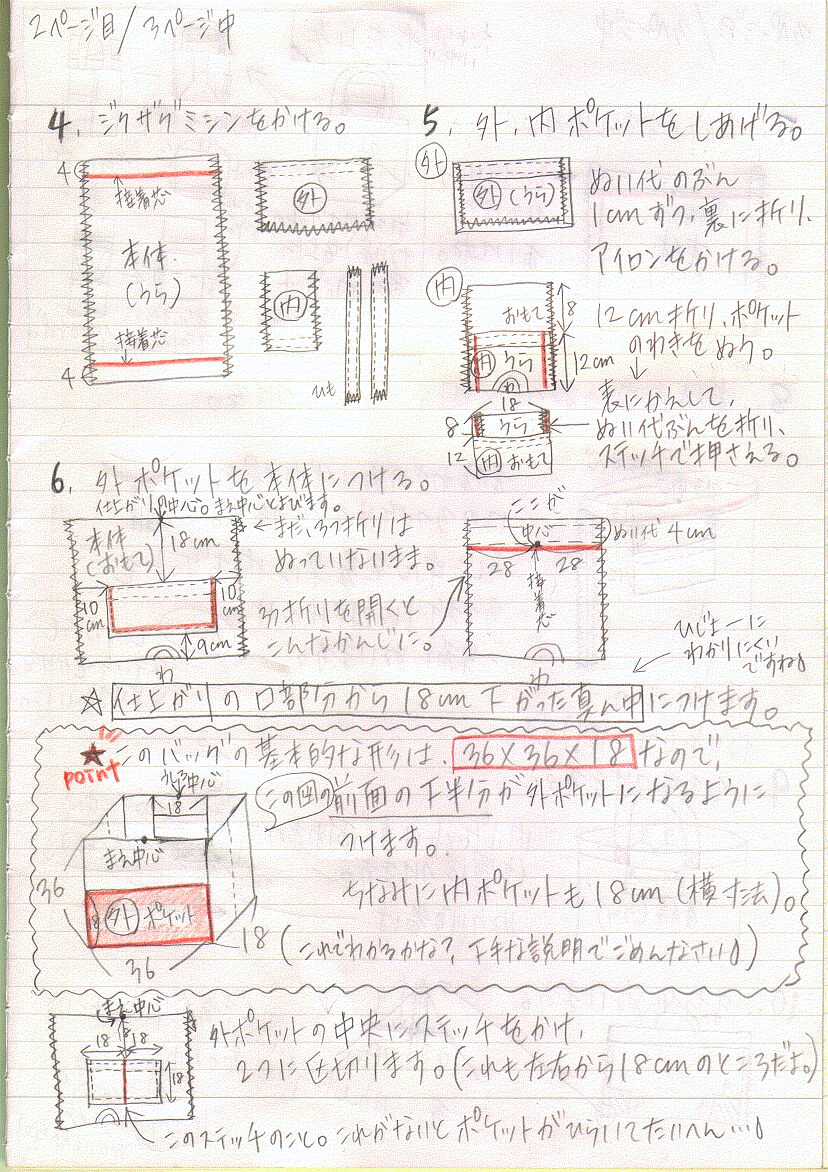 2ページ目/3ページ中
4. ジグザグミシンをかける。
4
接着芯
本体
(うら)
接着芯
4
外
内
ひも
5. 外、内ポケットをしあげる。
外
外(うら)
ぬい代のぶん
1cmずつ、裏に折り、
アイロンをかける。
内
おもて
8
内 うら
12cm
わ
12cm折り、ポケット
のわきをぬう。
18
8
うら
12
内 おもて
表にかえして、
ぬい代ぶんを折り、
ステッチで押さえる。
6. 外ポケットを本体につける。
仕上がりの中心。まえ中心とよびます。
本体
(おもて)
18cm
10cm
10cm
9cm
わ
まだ、3つ折りは
ぬっていないまま。
3つ折りを開くと
こんなかんじに。
ここが
中心
ぬい代4cm
28
28
接着芯
わ
ひじょーに
わかりにくい
ですね
☆仕上がりの口部分から18cm下がった真ん中につけます。
★このバッグの基本的な形は、36×36×18なので、
point
この図の前面の下半分が外ポケットになるように
つけます。
うしろ中心
18
まえ中心
36
18
外ポケット
18
36
ちなみに内ポケットも18cm(横寸法)。
(これでわかるかな?、下手な説明でごめんなさい)
まえ中心
18
18
18
外ポケットの中央にステッチをかけ、
2つに区切ります。(これも左右から18cmのところだよ。)
このステッチのこと。これがないとポケットがひらいてたいへん…